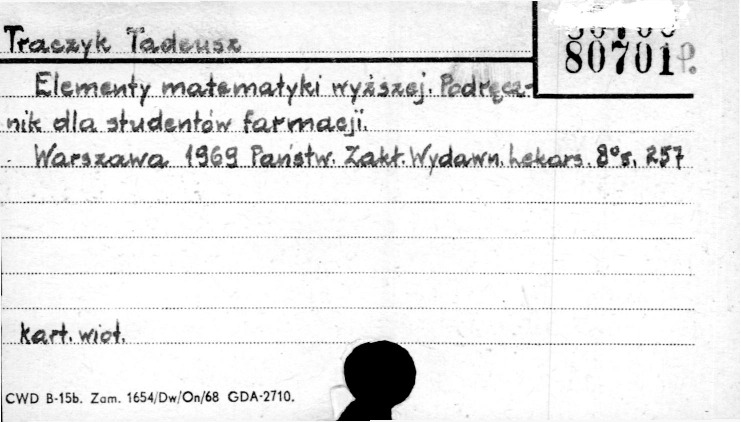 Traczyk Tadeusz
80701 P.
Elementy matematyki wyższej. Podręcz-
nik dla studentów farmacji.
Warszawa 1969 Państw. Zakł. Wydawn. Lekars. 8° s. 257
kart. wiot.
CWD B-15b. Zam. 1654/Dw/On/68 GDA-2710.